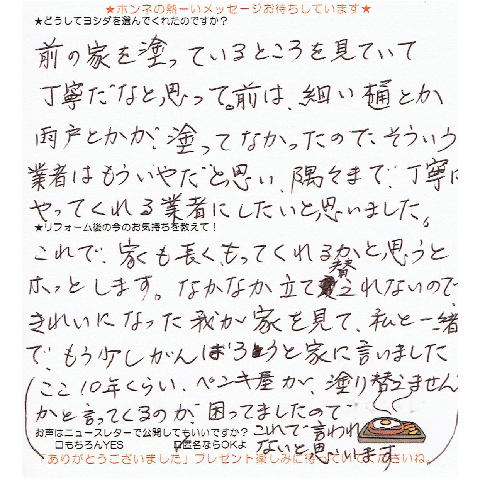 ★ホンネの熱ーいメッセージお待ちしています★
★どうしてヨシダを選んでくれたのですか?
前の家を塗っているところを見ていて
丁寧だなと思って。前は、細い樋とか
雨戸とかが、塗ってなかったので、そういう
業者はもういやだと思い、隅々まで、丁寧に
やってくれる業者にしたいと思いました。
★リフォーム後の今のお気持ちを教えて!
これで、家も長くもってくれるかと思うと
ホッとします。なかなか立て替えれないので
きれいになった我が家を見て、私と一緒
で、もう少しがんばろうと家に言いました
(ここ10年くらい、ペンキ屋が、塗り替えません
かと言ってくるのが、困ってましたので
お声はニュースレターで公開してもいいですか?
これで言われ
□もちろんYES □匿名ならOKよ
ないと思います。)
「ありがとうございました」プレゼント楽しみに待っていてくださいね。